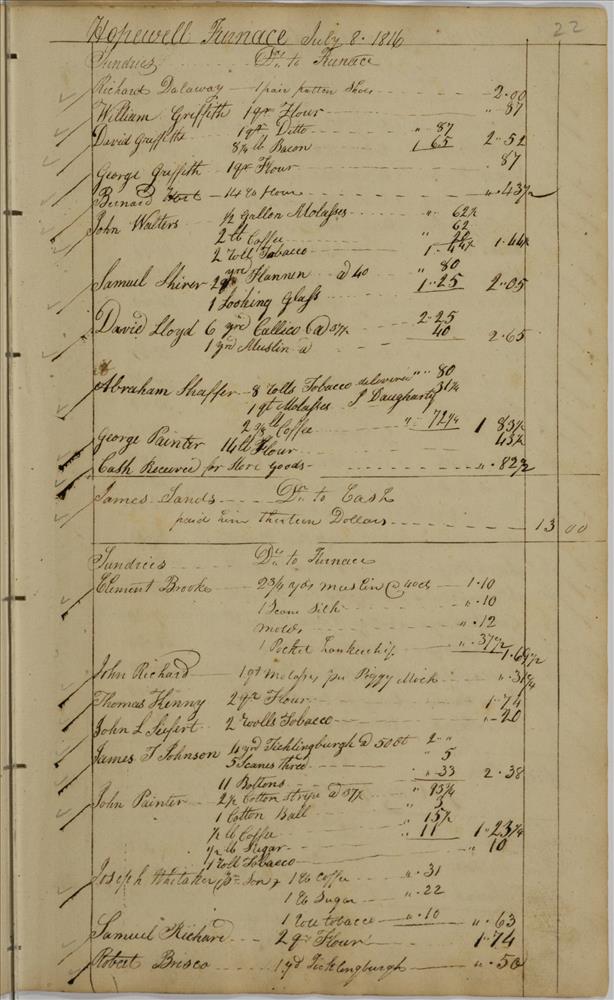 22
Hopewell Furnace July 8. 1816
Sundries Drs. to Furnace
Richard Dalaway 1 pair pattern Shoes 2.00
William Griffith 1 qr Flour " 87
David Griffith 1 qr Ditto " 87
8¾ lb Bacon 1.65 2.52
George Griffith 1 qr Flour 87
Benard 14 lb Flour ". 43½
John Walters ½ Gallon Molasses " 62½
2 lb Coffee " 62
2 Roll Tobacco 20 1.44½ 1.44½
Samuel Shirer 2 yrd Flannen @ 40 " 80
1 Looking Glass 1.25 2.05
David Lloyd 6 yrd Callico @ 37½ 2.25
1 yrd Muslin a 40 2.65
Abraham Shaffer 8 rolls Tobacco delivered " 80
1 qt Molasses J Daugharty 31¼
2 lb Coffee ". 72¼ 1 83½
George Painter 14 lb Flour 43½
Cash Received for Store Goods ". 82½
James Sands Dr. to Cash
paid him thirteen Dollars 13 00
Sundries Drs. to Furnace
Clement Brooke 2¾ yds muslin @ 40cts 1.10
1 Scane Silk ". 10
molds ". 12
1 Pocket hankerchif ". 37½ 1.69½
John Richard 1 qt molasses per Piggy Mock ". 31¼
Thomas Kenny 2 qr Flour 1.74
John L Seifert 2 roolls Tobacco "- 20
James T Johnson 4 yrd Ticklingburgh @ 50 ct 2 "
5 Scanes thred " 5
11 Bottons ". 33 2.38
John Painter 2½ Cotton stripe @ 37½ " 93¾
1 Cotton Ball " 3
½ lb Coffee " 15½
½ lb Sugar " 11 1.23¼
1 Roll Tobacco " 10
Joseph Whitaker 1 lb Coffee ". 31
1 lb Sugar ". 22
1 Role tobacco ". 10 ". 63
Samuel Richard 2 qr Flour 1.74
Robert Brisco 1 yd Ticklingburgh ". 50